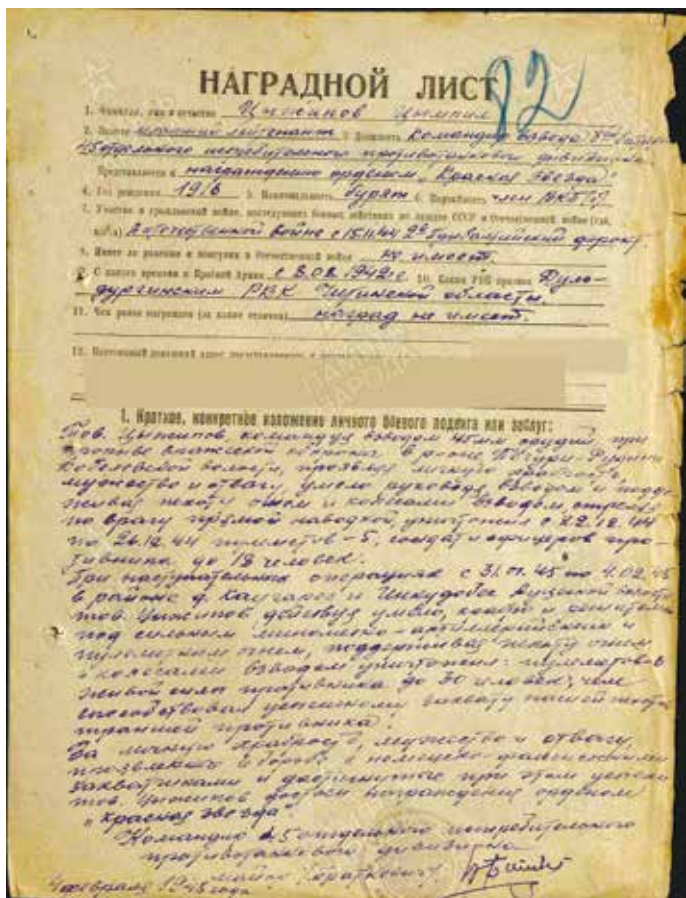 82
НАГРАДНОЙ ЛИСТ
1. Фамилия, имя и отчество Цыжипов Цымпил
2. Звание младший лейтенант 3. Должность командир взвода
45 отдельного истребительного противотанкового дивизиона
Представляется к награждению орденом „Красная Звезда"
4. Год рождения 1916 5. Национальность бурят 6. Партийность член ВКП(б)
7. Участие в гражданской войне, последующих боевых действиях по защите СССР и Отечественной войне (где, когда) В Отечественной войне с 15.11.44 2й Прибалтийский фронт.
8. Имеет ли ранения и контузии в Отечественной войне не имеет.
9. С какого времени в Красной Армии с 3.02.1942 г. 10. Каким РВК призван Дуль-
дургинским РВК Читинской области.
11. Чем ранее награжден (за какие отличия) наград не имеет.
12. Постоянный домашний адрес
I. Краткое, конкретное изложение личного боевого подвига или заслуг:
Тов. Цыжипов, командуя взводом 45 мм орудий, при
прорыве вражеской обороны в районе
волости, проявил личную храбрость,
мужество и отвагу, умело руководя взводом и поддер-
живая пехоту огнем и колесами взводом,
по врагу прямой наводкой, уничтожил с 22.12.44
по 26.12.44 пулеметов - 5, солдат и офицеров про-
тивника до 18 человек.
При наступательных операциях с 31.01.45 по 4.02.45
в районе д. и волости
тов. Цыжипов действуя умело, и решительно
под сильным минометно-артиллерийским и
пулеметным огнем, поддерживая пехоту огнем
и колесами взводом уничтожил: пулеметов
живой силы противника до 30 человек, чем
способствовал успешному захвату нашей пехотой
траншей противника.
За личную храбрость, мужество и отвагу,
в борьбе с немецко-фашистскими
захватчиками и достигнутые при этом успехи
тов. Цыжипов достоин награждения орденом
„Красная Звезда"
Командир 45 отдельного истребительного
противотанкового дивизиона
майор
4 февраля 1945 года